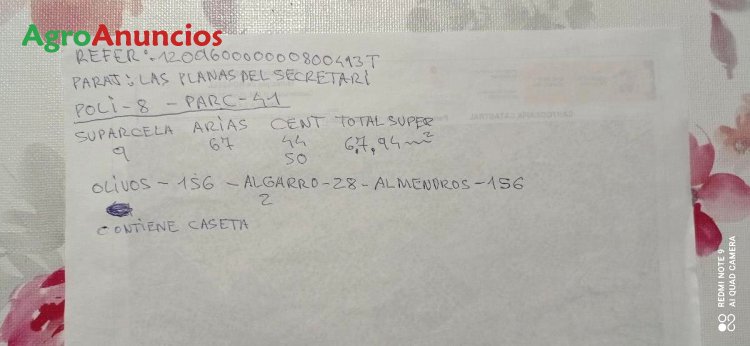 AgroAnuncios
REFER:-12096000000800493T
PARAJ: LAS PLANAS DEL SECRETARI
POLI-8 - PARC-41
SUPARCELA ARIAS CENT TOTAL SUPER
9 67 44 67,94m²
50
OLIVOS - 156 - ALGARRO-28-ALMENDROS-156
2
CONTIENE CASETA
REDMI NOTE 9
AI QUAD CAMERA